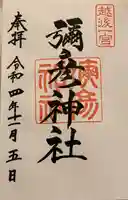 越後一宮
奉拝
彌彦神社
令和四年十一月五日